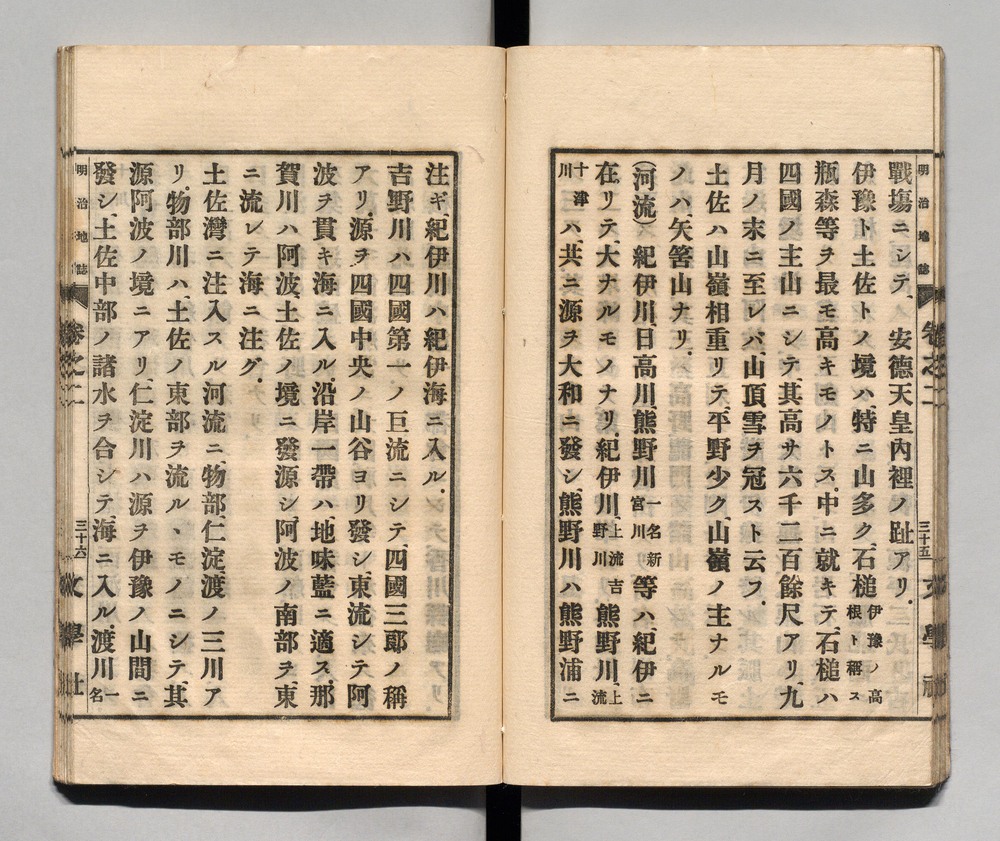 明治地誌 卷之二 三十五 文學社
戰塲ニシテ、安德天皇內裡ノ趾アリ、
伊豫ト土佐トノ境ハ特ニ山多ク、石槌伊豫ノ高根ト稱ス
瓶森等ヲ最モ高キモノトス、中ニ就キテ、石槌ハ
四國ノ主山ニシテ、其高サ六千二百餘尺アリ、九
月ノ末ニ至レバ、山頂雪ヲ冠スト云フ、
土佐ハ山嶺相重リテ、平野少ク、山嶺ノ主ナルモ
ノハ、矢筈山ナリ、
(河流)紀伊川、日高川、熊野川一名新宮川等ハ、紀伊ニ
在リテ、大ナルモノナリ、紀伊川上流吉野川熊野川、上流
十津川ハ、共ニ源ヲ大和ニ發シ、熊野川ハ熊野浦ニ
注ギ、紀伊川ハ紀伊海ニ入ル、
吉野川ハ四國第一ノ巨流ニシテ、四國三郞ノ稱
アリ、源ヲ四國中央ノ山谷ヨリ發シ、東流シテ、阿
波ヲ貫キ海ニ入ル、沿岸一帶ハ、地味藍ニ適ス、那
賀川ハ阿波、土佐ノ境ニ發源シ、阿波ノ南部ヲ、東
ニ流レテ海ニ注グ、
土佐灣ニ注入スル河流ニ、物部、仁淀、渡ノ三川ア
リ、物部川ハ、土佐ノ東部ヲ流ル、モノニシテ、其
源阿波ノ境ニアリ、仁淀川ハ源ヲ伊豫ノ山間ニ
發シ、土佐中部ノ諸水ヲ合シテ、海ニ入ル、渡川一名
明治地誌 卷之二 三十六 文學社